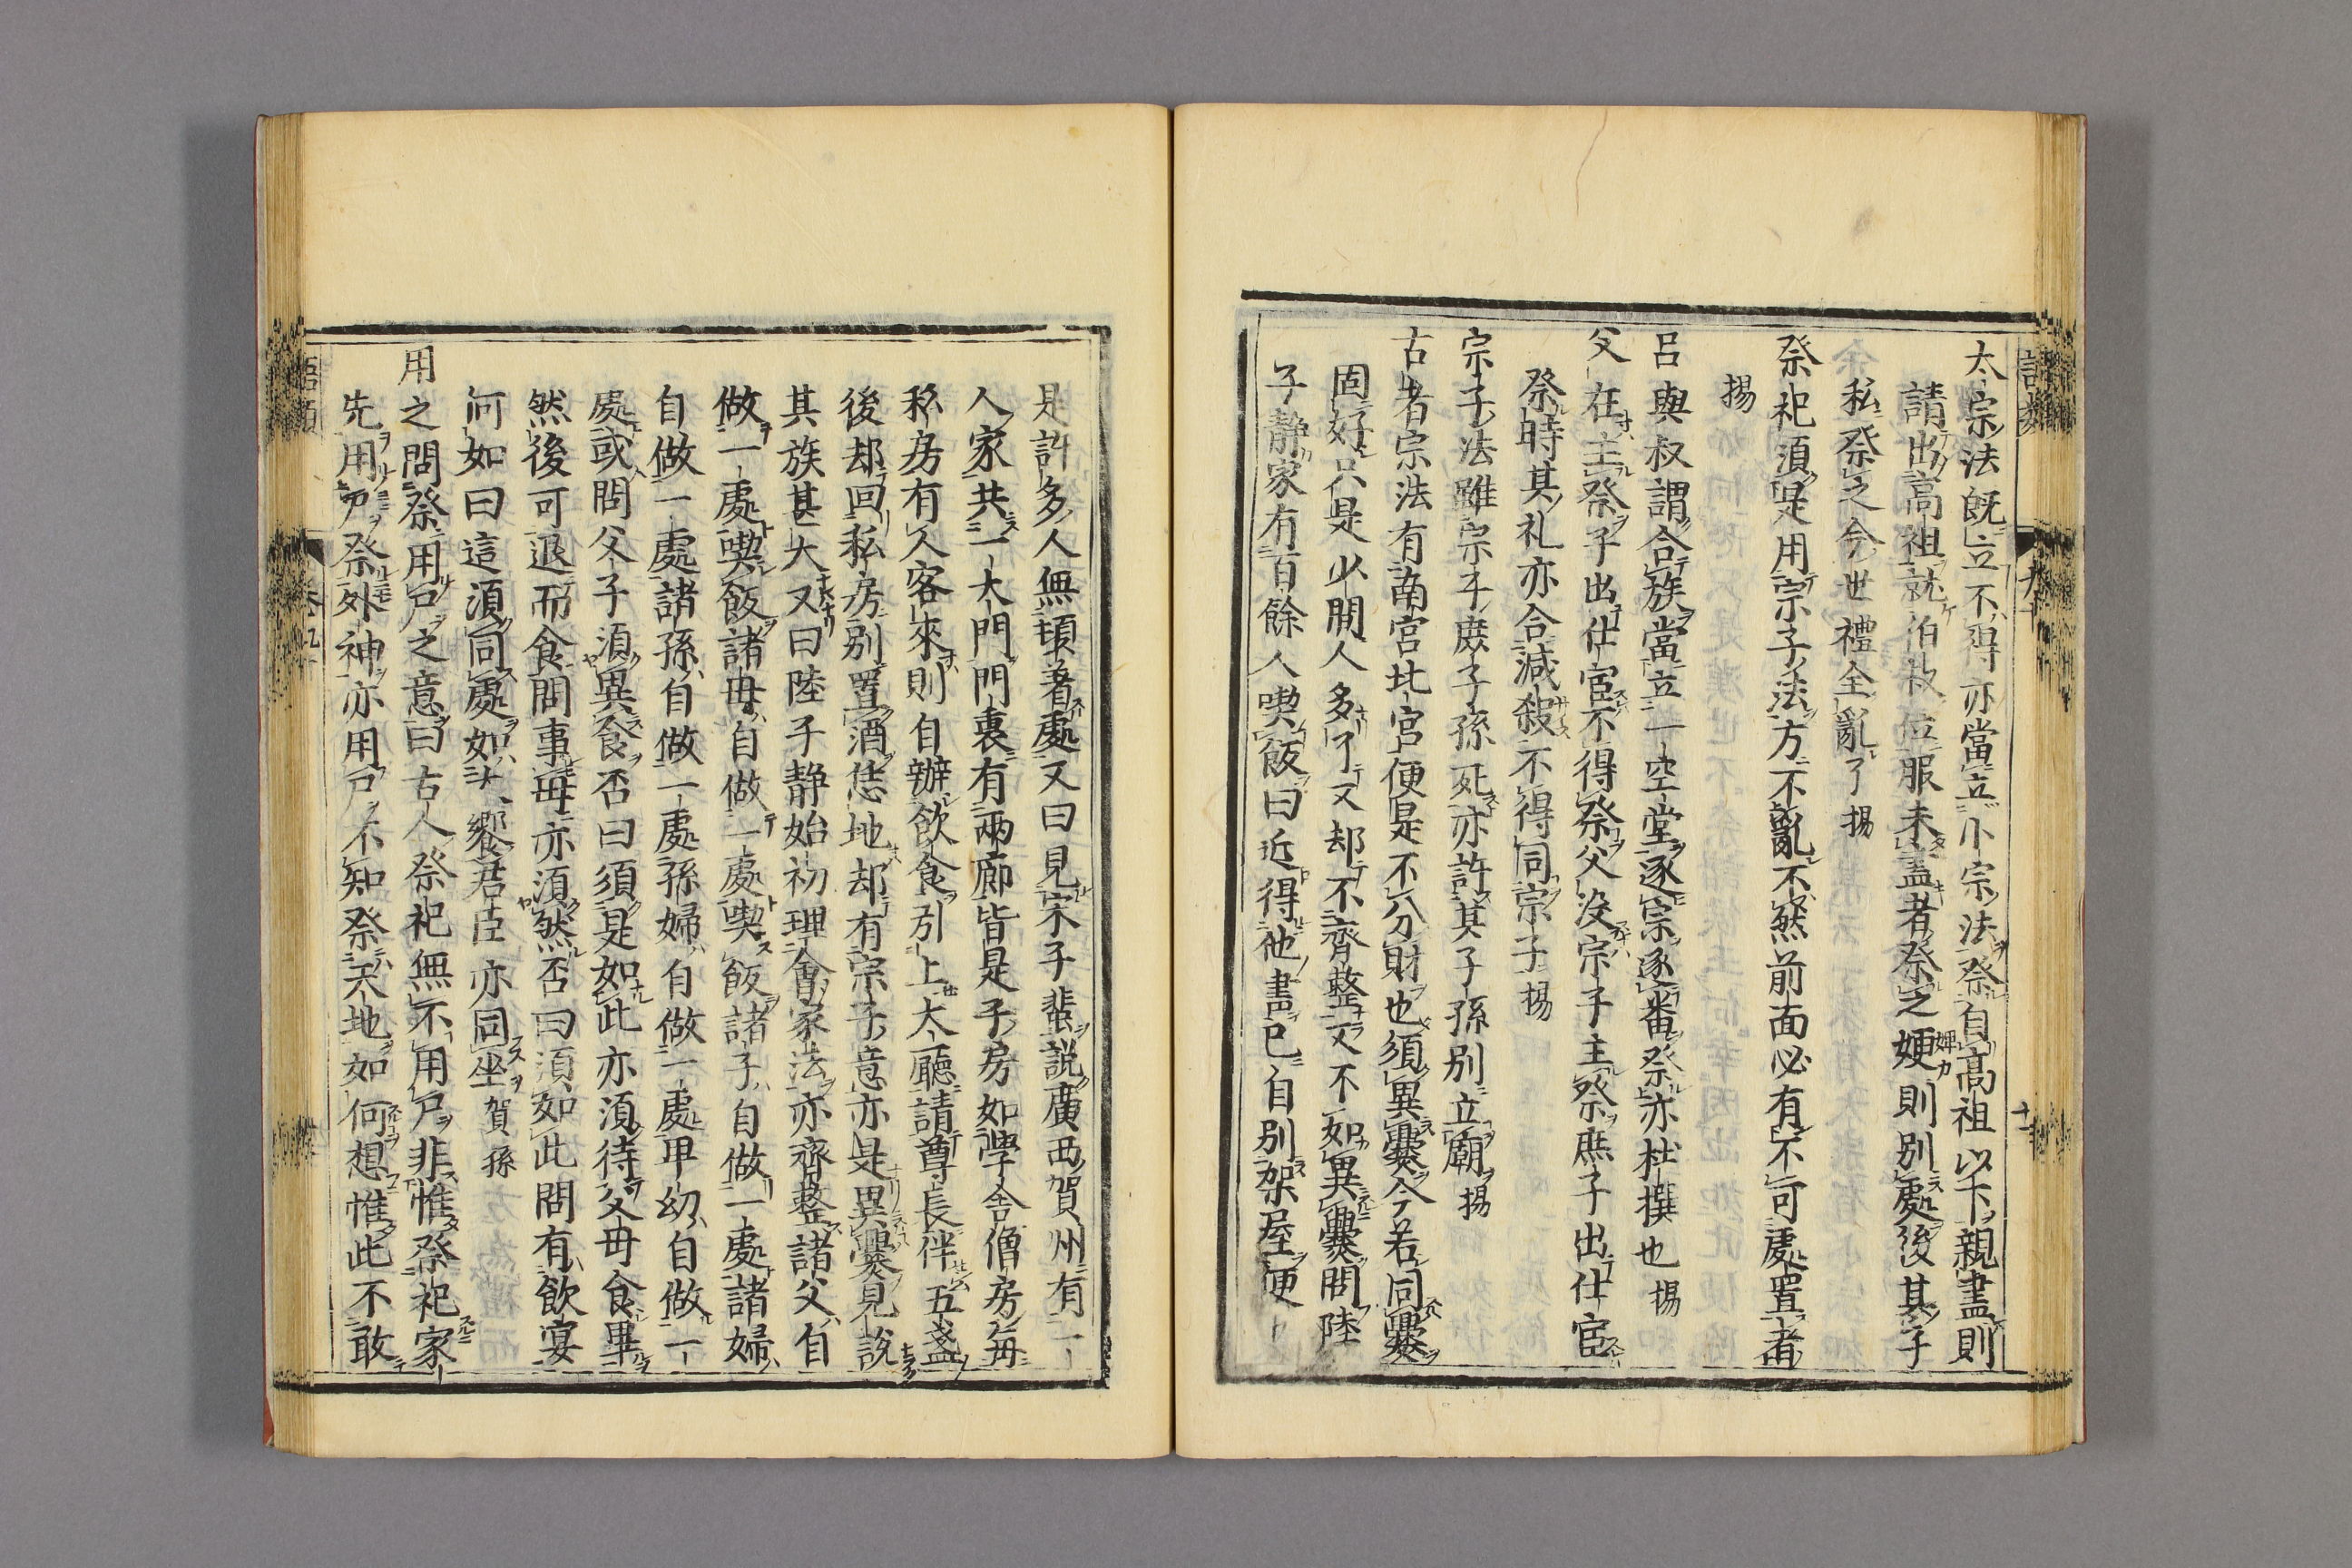 太宗法既立不得亦當立小宗法祭自高祖以下親盡則
請出高祖就伯叔位服未盡者祭之㛐則別處後其子
私祭之今世禮全亂了 揚
祭祀須是用宗子法方不亂不然前面必有不可處置者
揚
呂與叔謂合族當立一空堂逐宗逐番祭亦杜撰也 揚
父在主祭子出仕宦不得祭父沒宗子主祭庶子出仕宦
祭時其礼亦合減殺不得同宗子 揚
宗子法雖宗子庶子孫死亦許其子孫別立廟 揚
古者宗法有南宮北宮便是不分財也須異爨今若同爨
固好只是少間人多了又却不齊整又不如異爨問陸
子靜家有百餘人喫飯曰近得他書已自別架屋便
是許多人無頓着處又曰見宋子蜚說廣西賀州有一
人家共一大門門裏有兩廊皆是子房如學舍僧房每
私房有人客來則自辦飲食引上大廳請尊長伴五盞
後却回私房別置酒恁地却有宗子意亦是異爨見說
其族甚大又曰陸子静始初理會家法亦齊整諸父自
做一處喫飯諸母自做一處喫飯諸子自做一處諸婦
自做一處諸孫自做一處孫婦自做一處卑幼自做一
處或問父子須異食否曰須是如此亦須待父母食畢
然後可退而食問事母亦須然否曰須如此問有飲宴
何如曰這須同處如大饗君臣亦同坐 賀孫
用之問祭用尸之意曰古人祭祀無不用尸非惟祭祀家
先用尸祭外神亦用尸不知祭天地如何想惟此不敢